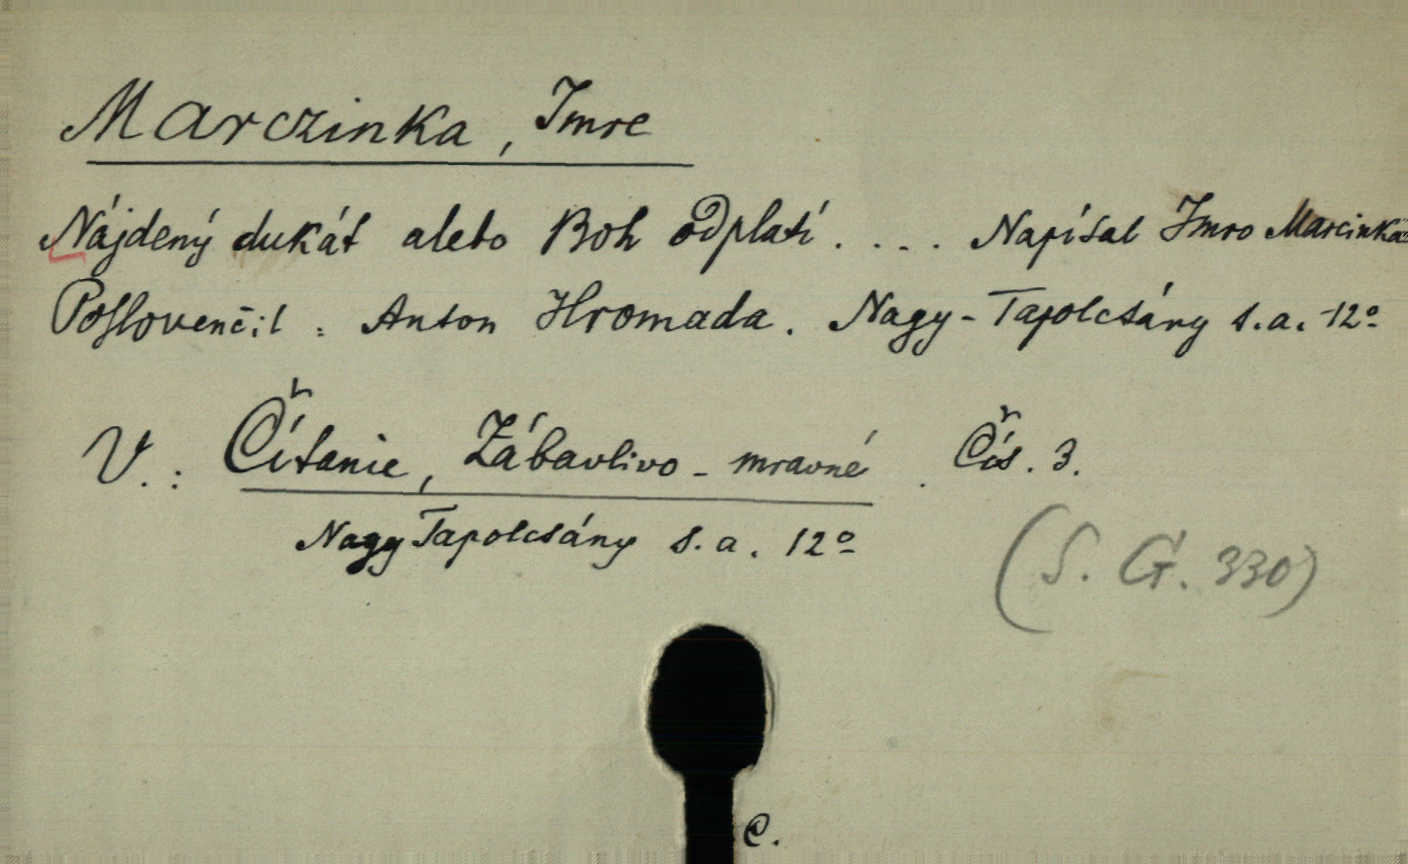 Marczinka, Imre
Nájdený dukát alebo Boh odplatí.... Napísal Imro Marcinka
Poslovenčil: Anton Hromada. Nagy-Tapolcsány s.a. 12º
V.: Čítanie, Zábavlivo-mravné. Čís. 3.
Nagy Tapolcsány s.a. 12º
(S. G. 330)
C.